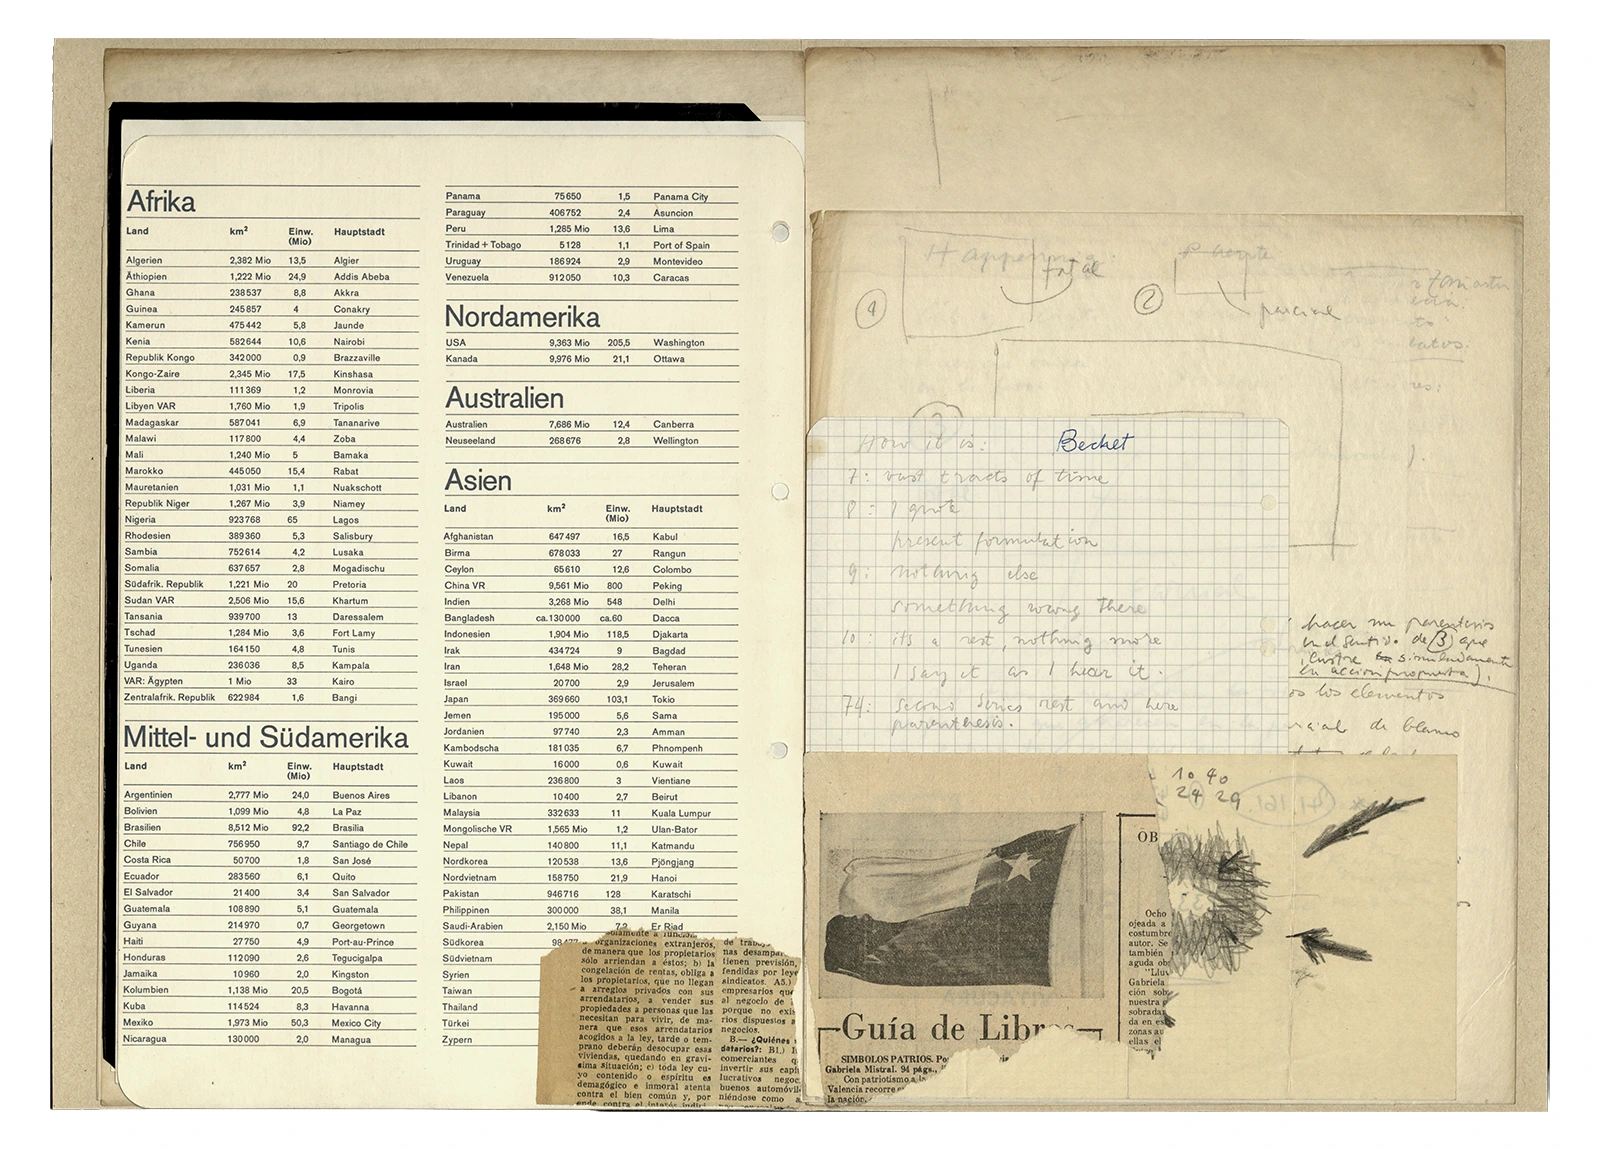 Afrika
Land km² Einw. (Mio) Hauptstadt
Algerien 2,382 Mio 13,5 Algier
Äthiopien 1,222 Mio 24,9 Addis Abeba
Ghana 238537 8,8 Akkra
Guinea 245857 4 Conakry
Kamerun 475442 5,8 Jaunde
Kenia 582644 10,6 Nairobi
Republik Kongo 342000 0,9 Brazzaville
Kongo-Zaire 2,345 Mio 17,5 Kinshasa
Liberia 111369 1,2 Monrovia
Libyen VAR 1,760 Mio 1,9 Tripolis
Madagaskar 587041 6,9 Tananarive
Malawi 117800 4,4 Zoba
Mali 1,240 Mio 5 Bamaka
Marokko 445050 15,4 Rabat
Mauretanien 1,031 Mio 1,1 Nuakschott
Republik Niger 1,267 Mio 3,9 Niamey
Nigeria 923768 65 Lagos
Rhodesien 389360 5,3 Salisbury
Sambia 752614 4,2 Lusaka
Somalia 637657 2,8 Mogadischu
Südafrik. Republik 1,221 Mio 20 Pretoria
Sudan VAR 2,506 Mio 15,6 Khartum
Tansania 939700 13 Daressalem
Tschad 1,284 Mio 3,6 Fort Lamy
Tunesien 164150 4,8 Tunis
Uganda 236036 8,5 Kampala
VAR: Ägypten 1 Mio 33 Kairo
Zentralafrik. Republik 622984 1,6 Bangi
Mittel- und Südamerika
Land km² Einw. (Mio) Hauptstadt
Argentinien 2,777 Mio 24,0 Buenos Aires
Bolivien 1,099 Mio 4,8 La Paz
Brasilien 8,512 Mio 92,2 Brasilia
Chile 756950 9,7 Santiago de Chile
Costa Rica 50700 1,8 San José
Ecuador 283560 6,1 Quito
El Salvador 21400 3,4 San Salvador
Guatemala 108890 5,1 Guatemala
Guyana 214970 0,7 Georgetown
Haiti 27750 4,9 Port-au-Prince
Honduras 112090 2,6 Tegucigalpa
Jamaika 10960 2,0 Kingston
Kolumbien 1,138 Mio 20,5 Bogotá
Kuba 114524 8,3 Havanna
Mexiko 1,973 Mio 50,3 Mexico City
Nicaragua 130000 2,0 Managua
Panama 75650 1,5 Panama City
Paraguay 406752 2,4 Asuncion
Peru 1,285 Mio 13,6 Lima
Trinidad + Tobago 5128 1,1 Port of Spain
Uruguay 186924 2,9 Montevideo
Venezuela 912050 10,3 Caracas
Nordamerika
USA 9,363 Mio 205,5 Washington
Kanada 9,976 Mio 21,1 Ottawa
Australien
Australien 7,686 Mio 12,4 Canberra
Neuseeland 268676 2,8 Wellington
Asien
Land km² Einw. (Mio) Hauptstadt
Afghanistan 647497 16,5 Kabul
Birma 678033 27 Rangun
Ceylon 65610 12,6 Colombo
China VR 9,561 Mio 800 Peking
Indien 3,268 Mio 548 Delhi
Bangladesh ca.130000 ca.60 Dacca
Indonesien 1,904 Mio 118,5 Djakarta
Irak 434724 9 Bagdad
Iran 1,648 Mio 28,2 Teheran
Israel 20700 2,9 Jerusalem
Japan 369660 103,1 Tokio
Jemen 195000 5,6 Sama
Jordanien 97740 2,3 Amman
Kambodscha 181035 6,7 Phnompenh
Kuwait 16000 0,6 Kuwait
Laos 236800 3 Vientiane
Libanon 10400 2,7 Beirut
Malaysia 332633 11 Kuala Lumpur
Mongolische VR 1,565 Mio 1,2 Ulan-Bator
Nepal 140800 11,1 Katmandu
Nordkorea 120538 13,6 Pjöngjang
Nordvietnam 158750 21,9 Hanoi
Pakistan 946716 128 Karatschi
Philippinen 300000 38,1 Manila
Saudi-Arabien 2,150 Mio 7,2 Er Riad
Südkorea
Südvietnam
Syrien
Taiwan
Thailand
Türkei
Zypern
organizaciones extranjeros,
de manera que los propietarios
sólo arriendan a éstos; b) la
congelación de rentas, obliga a
los propietarios, que no llegan
a arreglos privados con sus
arrendatarios, a vender sus
propiedades a personas que las
necesitan para vivir, de ma-
nera que esos arrendatarios
acogidos a la ley, tarde o tem-
prano deberán desocupar esas
viviendas, quedando en graví-
sima situación; c) toda ley cu-
yo contenido o espíritu es
demagógico e inmoral atenta
contra el bien común y, por
ende contra el interés
de trab
nas desampar
tienen previsión,
fendidas por leye
sindicatos. A5.)
empresarios que
al negocio de
porque no exis
rios dispuestos a
negocios.
B.— ¿Quiénes
datarios?: B1.)
comerciantes q
invertir sus capi
lucrativos negoc
buenos automóvil
niéndose como a
Happening:
total
parcial
2
How it is: Becket
7: vast tracts of time
8: I quote
present formulation
9: nothing else
something wrong there
10: its a rest, nothing more
I say it as I hear it.
74: second series rest and here
parenthesis.
hacer un parentesis
en el sentido de (3) que
ilustre simultaneamente
en accion propuesta).
os los elementos
de blanco
10 40
24 29
Guía de Libros
SIMBOLOS PATRIOS. Po
Gabriela Mistral. 94 págs.,
Con patriotismo a
Valencia recorre
la nación.
OB
Ocho
ojeada a
costumbre
autor. Se
también
aguda ob
"Lluv
Gabriela
ción sob
nuestra
sobradar
da en es
zonas au
ellas el